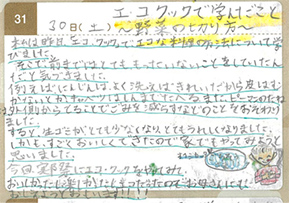 31
エコクックで学んだこと
30日(土) 〜野菜の切り方〜
私は昨日、エコクックでエコな料理の方法について学
びました。
そこで、今まではとてももったいないことをしていたん
だと気づきました。
例えばにんじんは、よく洗えばきれいだから皮はむ
かないとかキャベツはしんまでたべる、また、ピーマンのたねは
外側からとることでごみを減らすなどのことをしておどろき
ました。
すると、生ゴミがとても少なくなりとてもうれしくなりました。
しかも、すごくおいしくできたので家でもやってみようと
思いました。
今回実際にエコクックをやってみて
おいしかったし楽しかったし